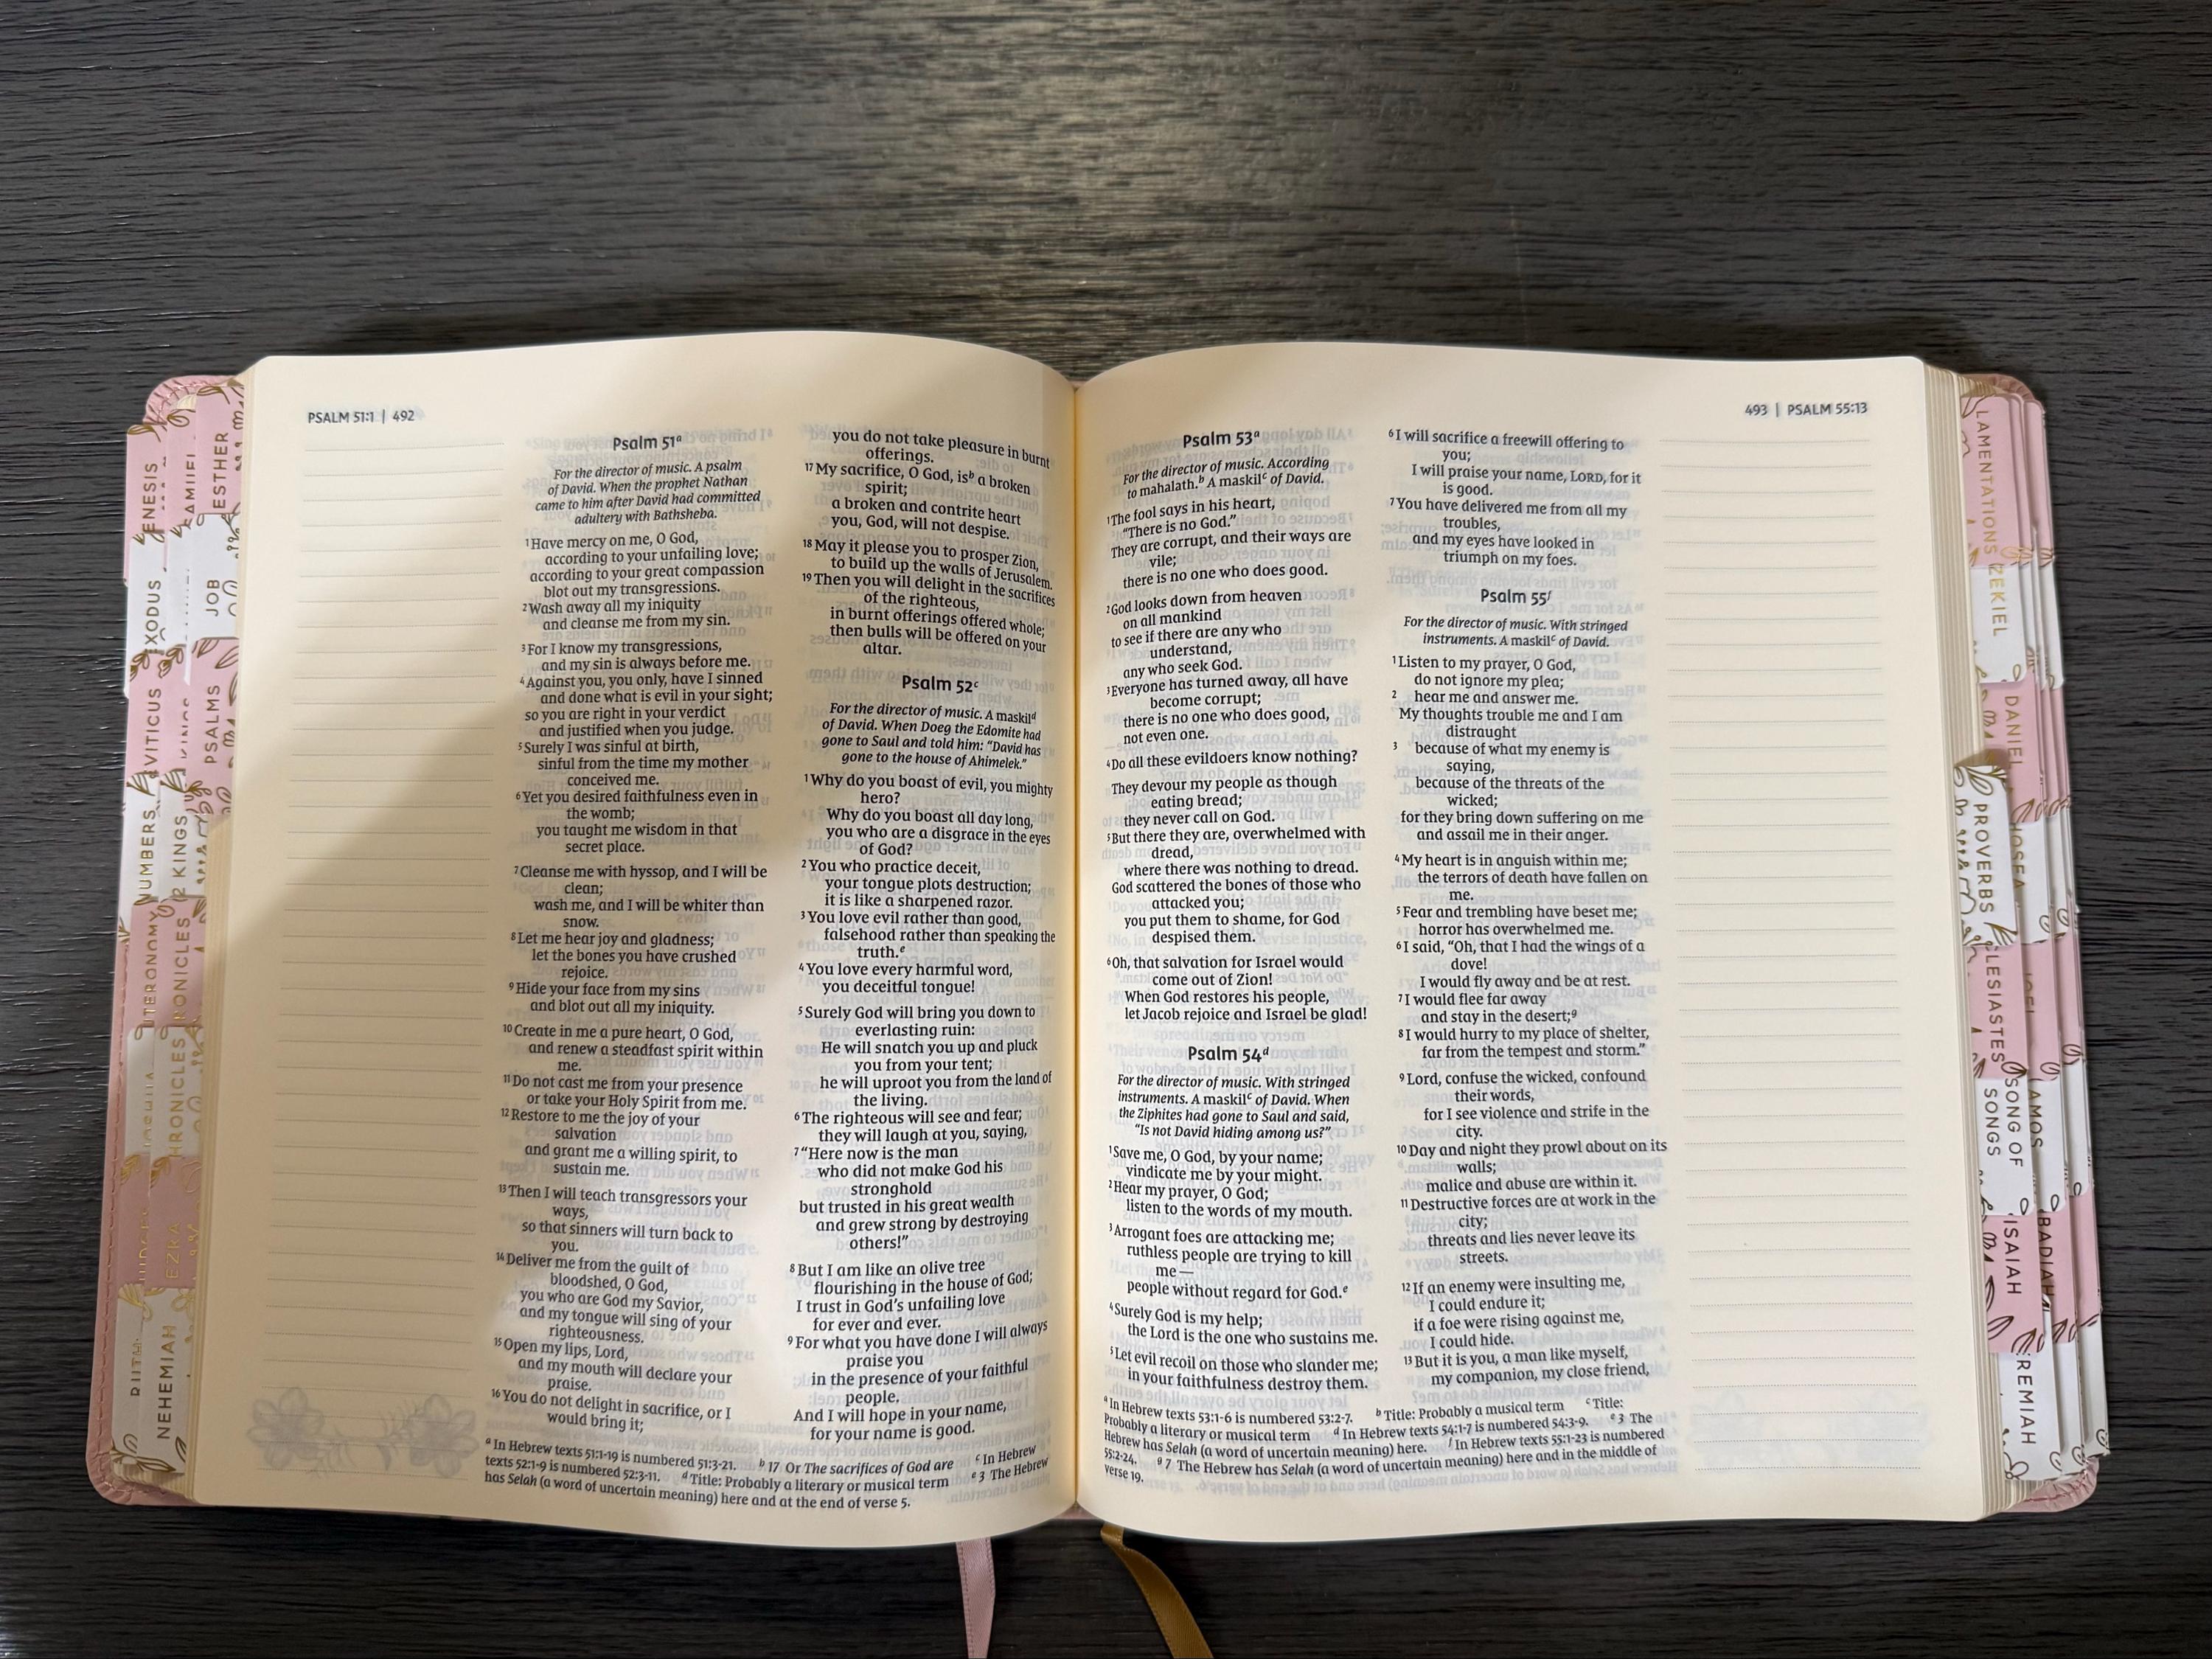 PSALM 51:1 | 492
Psalm 51a
For the director of music. A psalm
of David. When the prophet Nathan
came to him after David had committed
adultery with Bathsheba.
1Have mercy on me, O God,
according to your unfailing love;
according to your great compassion
blot out my transgressions.
2Wash away all my iniquity
and cleanse me from my sin.
3For I know my transgressions,
and my sin is always before me.
4Against you, you only, have I sinned
and done what is evil in your sight;
so you are right in your verdict
and justified when you judge.
5Surely I was sinful at birth,
sinful from the time my mother
conceived me.
6Yet you desired faithfulness even in
the womb;
you taught me wisdom in that
secret place.
7Cleanse me with hyssop, and I will be
clean;
wash me, and I will be whiter than
snow.
8Let me hear joy and gladness;
let the bones you have crushed
rejoice.
9Hide your face from my sins
and blot out all my iniquity.
10Create in me a pure heart, O God,
and renew a steadfast spirit within
me.
11Do not cast me from your presence
or take your Holy Spirit from me.
12Restore to me the joy of your
salvation
and grant me a willing spirit, to
sustain me.
13Then I will teach transgressors your
ways,
so that sinners will turn back to
you.
14Deliver me from the guilt of
bloodshed, O God,
you who are God my Savior,
and my tongue will sing of your
righteousness.
15Open my lips, Lord,
and my mouth will declare your
praise.
16You do not delight in sacrifice, or I
would bring it;
you do not take pleasure in burnt
offerings.
17My sacrifice, O God, isb a broken
spirit;
a broken and contrite heart
you, God, will not despise.
18May it please you to prosper Zion,
to build up the walls of Jerusalem.
19Then you will delight in the sacrifices
of the righteous,
in burnt offerings offered whole;
then bulls will be offered on your
altar.
Psalm 52c
For the director of music. A maskild
of David. When Doeg the Edomite had
gone to Saul and told him: “David has
gone to the house of Ahimelek.”
1Why do you boast of evil, you mighty
hero?
Why do you boast all day long,
you who are a disgrace in the eyes
of God?
2You who practice deceit,
your tongue plots destruction;
it is like a sharpened razor.
3You love evil rather than good,
falsehood rather than speaking the
truth.e
4You love every harmful word,
you deceitful tongue!
5Surely God will bring you down to
everlasting ruin:
He will snatch you up and pluck
you from your tent;
he will uproot you from the land of
the living.
6The righteous will see and fear;
they will laugh at you, saying,
7“Here now is the man
who did not make God his
stronghold
but trusted in his great wealth
and grew strong by destroying
others!”
8But I am like an olive tree
flourishing in the house of God;
I trust in God’s unfailing love
for ever and ever.
9For what you have done I will always
praise you
in the presence of your faithful
people.
And I will hope in your name,
for your name is good.
a In Hebrew texts 51:1-19 is numbered 51:3-21. b 17 Or The sacrifices of God are c In Hebrew
texts 52:1-9 is numbered 52:3-11. d Title: Probably a literary or musical term e 3 The Hebrew
has Selah (a word of uncertain meaning) here and at the end of verse 5.
493 | PSALM 55:13
Psalm 53a
For the director of music. According
to mahalath.b A maskilc of David.
1The fool says in his heart,
“There is no God.”
They are corrupt, and their ways are
vile;
there is no one who does good.
2God looks down from heaven
on all mankind
to see if there are any who
understand,
any who seek God.
3Everyone has turned away, all have
become corrupt;
there is no one who does good,
not even one.
4Do all these evildoers know nothing?
They devour my people as though
eating bread;
they never call on God.
5But there they are, overwhelmed with
dread,
where there was nothing to dread.
God scattered the bones of those who
attacked you;
you put them to shame, for God
despised them.
6Oh, that salvation for Israel would
come out of Zion!
When God restores his people,
let Jacob rejoice and Israel be glad!
Psalm 54d
For the director of music. With stringed
instruments. A maskilc of David. When
the Ziphites had gone to Saul and said,
“Is not David hiding among us?”
1Save me, O God, by your name;
vindicate me by your might.
2Hear my prayer, O God;
listen to the words of my mouth.
3Arrogant foes are attacking me;
ruthless people are trying to kill
me—
people without regard for God.e
4Surely God is my help;
the Lord is the one who sustains me.
5Let evil recoil on those who slander me;
in your faithfulness destroy them.
6I will sacrifice a freewill offering to
you;
I will praise your name, LORD, for it
is good.
7You have delivered me from all my
troubles,
and my eyes have looked in
triumph on my foes.
Psalm 55f
For the director of music. With stringed
instruments. A maskilc of David.
1Listen to my prayer, O God,
do not ignore my plea;
2 hear me and answer me.
My thoughts trouble me and I am
distraught
3 because of what my enemy is
saying,
because of the threats of the
wicked;
for they bring down suffering on me
and assail me in their anger.
4My heart is in anguish within me;
the terrors of death have fallen on
me.
5Fear and trembling have beset me;
horror has overwhelmed me.
6I said, “Oh, that I had the wings of a
dove!
I would fly away and be at rest.
7I would flee far away
and stay in the desert;g
8I would hurry to my place of shelter,
far from the tempest and storm.”
9Lord, confuse the wicked, confound
their words,
for I see violence and strife in the
city.
10Day and night they prowl about on its
walls;
malice and abuse are within it.
11Destructive forces are at work in the
city;
threats and lies never leave its
streets.
12If an enemy were insulting me,
I could endure it;
if a foe were rising against me,
I could hide.
13But it is you, a man like myself,
my companion, my close friend,
a In Hebrew texts 53:1-6 is numbered 53:2-7. b Title: Probably a musical term c Title:
Probably a literary or musical term d In Hebrew texts 54:1-7 is numbered 54:3-9. e 3 The
Hebrew has Selah (a word of uncertain meaning) here. f In Hebrew texts 55:1-23 is numbered
55:2-24. g 7 The Hebrew has Selah (a word of uncertain meaning) here and in the middle of
verse 19.
ENESIS
EXODUS
EVITICUS
NUMBERS
ESTHER
JOB
PSALMS
2 KINGS
EZRA
NEHEMIAH
LAMENTATIONS
ZEKIEL
DANIEL
HOSEA
PROVERBS
LESIASTES
JOEL
AMOS
SONG OF
SONGS
BADIAH
ISAIAH
REMIAH